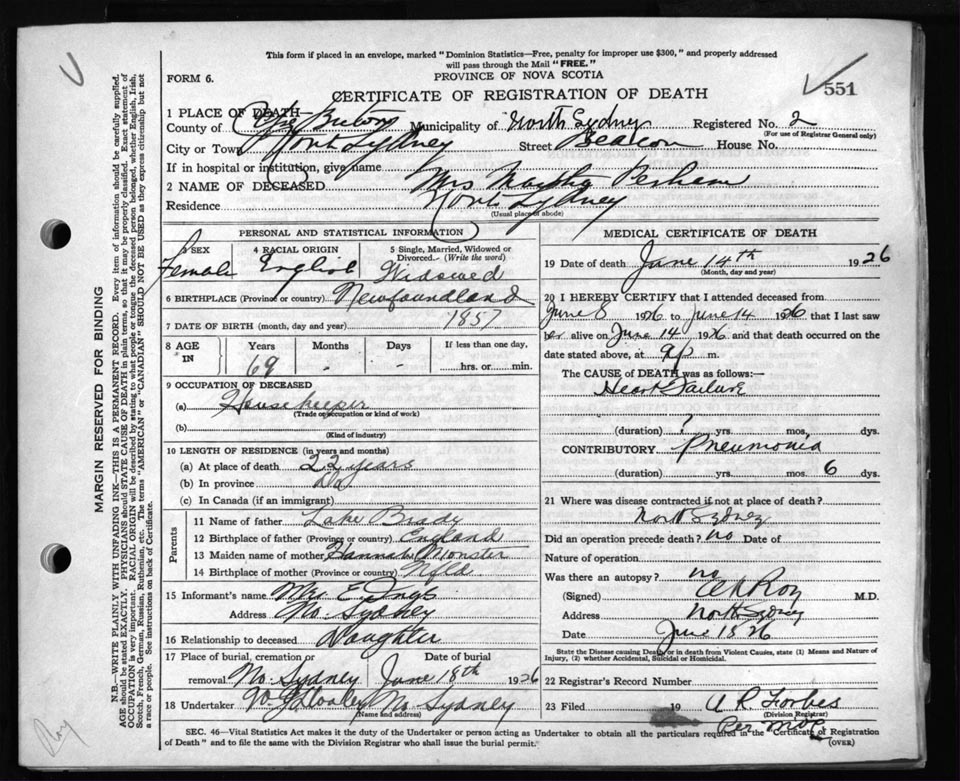 This form if placed in an envelope, marked "Dominion Statistics—Free, penalty for improper use $300," and properly addressed
will pass through the Mail "FREE."
FORM 6.
PROVINCE OF NOVA SCOTIA
551
CERTIFICATE OF REGISTRATION OF DEATH
1 PLACE OF DEATH—
County of Cape Breton Municipality of North Sydney Registered No. 2
(For use of Registrar General only)
City or Town North Sydney Street Beacon House No.
If in hospital or institution, give name
2 NAME OF DECEASED Mrs Martha Perham
Residence North Sydney
(Usual place of abode)
PERSONAL AND STATISTICAL INFORMATION
3 SEX Female
4 RACIAL ORIGIN English
5 Single, Married, Widowed or Divorced. (Write the word) Widowed
6 BIRTHPLACE (Province or country) Newfoundland
7 DATE OF BIRTH (month, day and year) 1857
8 AGE IN Years 69 Months - Days - If less than one day, hrs. or min.
9 OCCUPATION OF DECEASED
(a) Housekeeper
(Trade or occupation or kind of work)
(b)
(Kind of industry)
10 LENGTH OF RESIDENCE (in years and months)
(a) At place of death 22 years
(b) In province Do
(c) In Canada (if an immigrant)
Parents
11 Name of father Luke Brady
12 Birthplace of father (Province or country) England
13 Maiden name of mother Hannah Monster
14 Birthplace of mother (Province or country) Nfld
15 Informant's name Mrs E
Address No. Sydney
16 Relationship to deceased Daughter
17 Place of burial, cremation or removal No. Sydney
Date of burial June 18th 1926
18 Undertaker No. Sydney
(Name and address)
MEDICAL CERTIFICATE OF DEATH
19 Date of death June 14th 1926
(Month, day and year)
20 I HEREBY CERTIFY that I attended deceased from
June 8 1926 to June 14 1926 that I last saw
her alive on June 14 1926 and that death occurred on the
date stated above, at 9 p m.
The CAUSE of DEATH was as follows:—
Heart Failure
(duration) ? yrs. mos. dys.
CONTRIBUTORY Pneumonia
(duration) yrs. mos. 6 dys.
21 Where was disease contracted if not at place of death?
North Sydney
Did an operation precede death? no Date of
Nature of operation
Was there an autopsy? no
(Signed) Roy M.D.
Address North Sydney
Date June 15 26
State the Disease causing Death, or in death from Violent Causes, state (1) Means and Nature of
Injury, (2) whether Accidental, Suicidal or Homicidal.
22 Registrar's Record Number
23 Filed 19 A R Forbes
(Division Registrar)
Per
SEC. 46—Vital Statistics Act makes it the duty of the Undertaker or person acting as Undertaker to obtain all the particulars required in the Certificate of Registration
of Death" and to file the same with the Division Registrar who shall issue the burial permit.
(OVER)
MARGIN RESERVED FOR BINDING
N.B.—WRITE PLAINLY WITH UNFADING INK—THIS IS A PERMANENT RECORD. Every item of information should be carefully supplied.
AGE should be stated EXACTLY. PHYSICIANS should STATE CAUSE OF DEATH in plain terms, so that it may be properly classified. Exact statement of
OCCUPATION is very important. RACIAL ORIGIN will be described by stating to what people or tongue the deceased person belonged, whether English, Irish,
Scotch, French, German, Russian, Ruthenian, etc. The terms "AMERICAN" or "CANADIAN" SHOULD NOT BE USED as they express citizenship but not
a race or people. See instructions on back of Certificate.
Roy